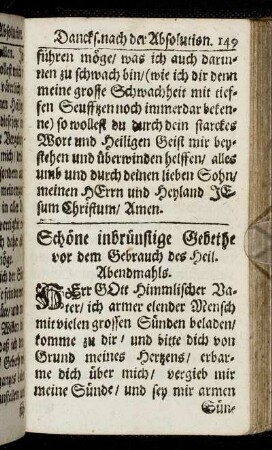 Dancks. nach der Absolution. 149
führen möge/ was ich auch darin-
nen zu schwach bin/ (wie ich dir denn
meine grosse Schwachheit mit tief-
fen Seufftzen noch immerdar beken-
ne) so wollest du durch dein starckes
Wort und Heiligen Geist mir bey-
stehen und überwinden helffen/ alles
umb und durch deinen lieben Sohn/
meinen HErrn und Heyland JE-
sum Christum/ Amen.
Schöne inbrünstige Gebethe
vor dem Gebrauch des Heil.
Abendmahls.
HErr GOtt Himmlischer Va-
ter/ ich armer elender Mensch
mit vielen grossen Sünden beladen/
komme zu dir/ und bitte dich von
Grund meines Hertzens/ erbar-
me dich über mich/ vergieb mir
meine Sünde/ und sey mir armen
Sün-